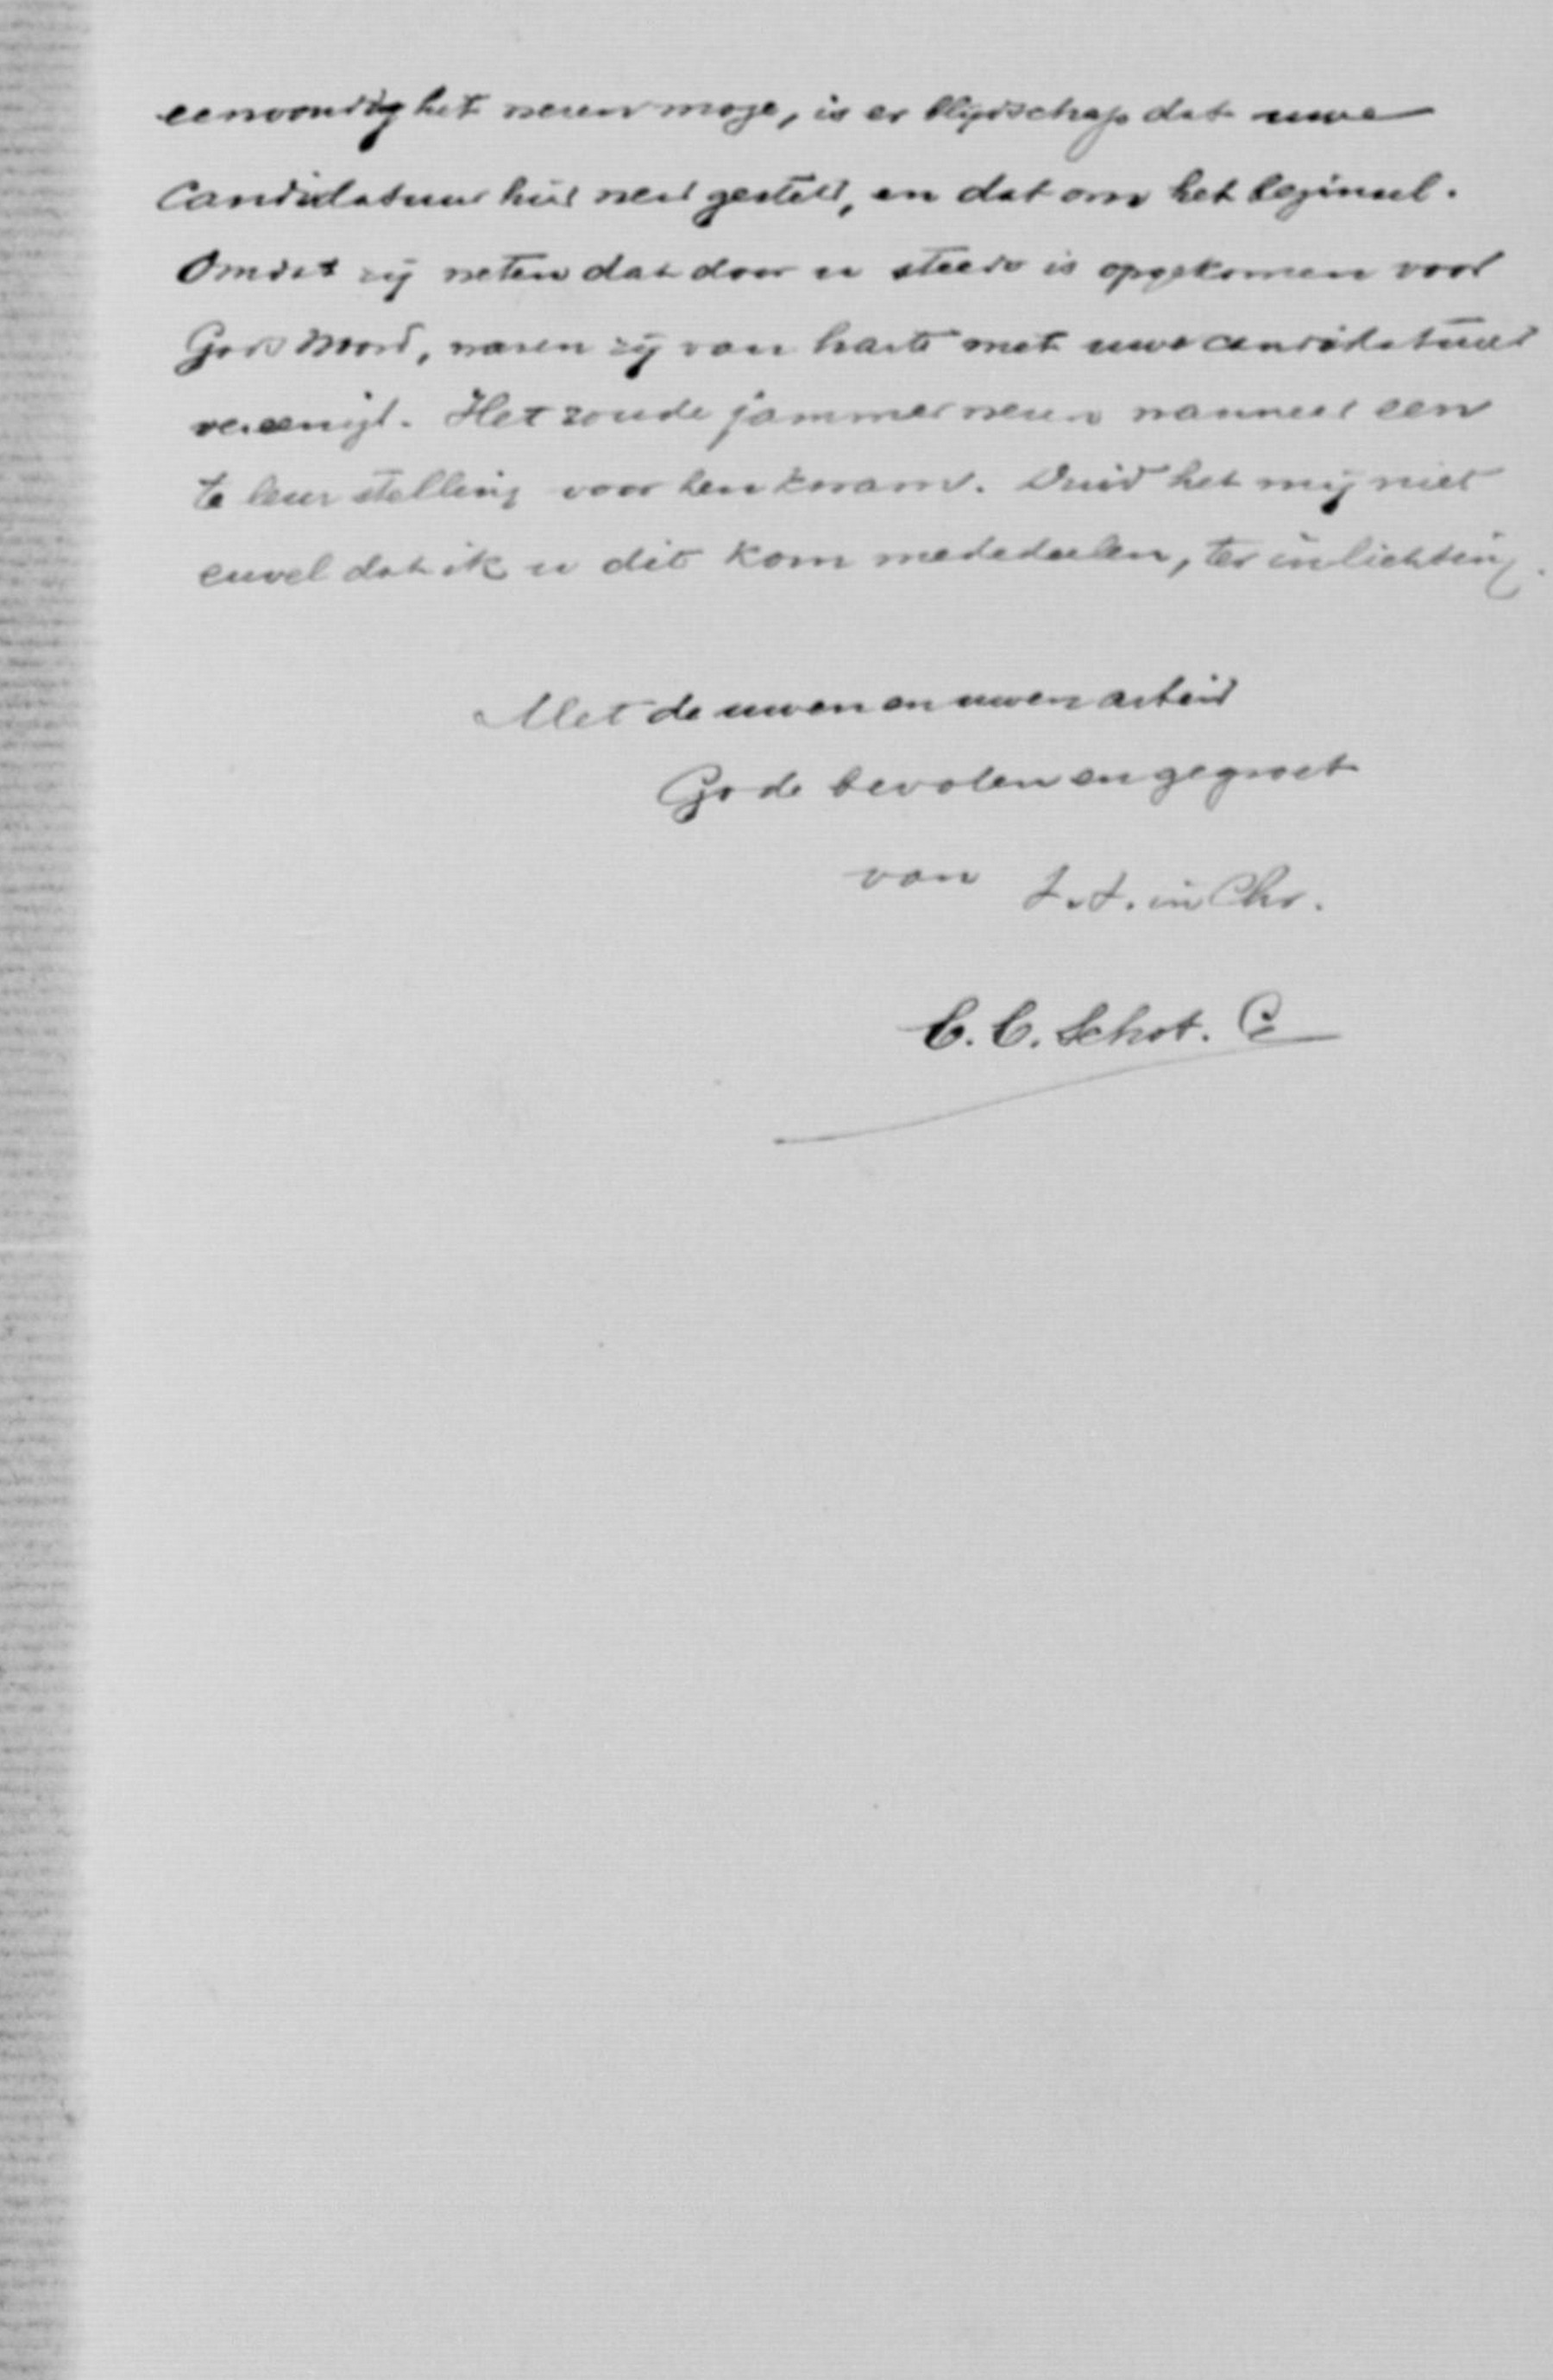 eenvoudig het wezen moge, is er blijdschap dat uwe
Candidatuur hier werd gesteld, en dat om het beginsel.
Omdat zij weten dat door u steeds is opgekomen voor
Gods Woord, waren zij van harte met uwe candidatuur
vereenigt. Het zoude jammer wezen wanneer een
te leur stelling voor hen kwam. Duid het mij niet
euvel dat ik u dit kom mededeelen, ter inlichting.
Met de uwen en uwen arbeid
Gode bevolen en gegroet
van t.t. in Chr.
C. C. Schot. C